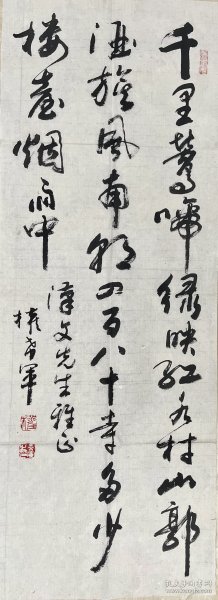 千里莺啼绿映红水村山郭
酒旗风南朝四百八十寺多少
楼台烟雨中
汉文先生雅正